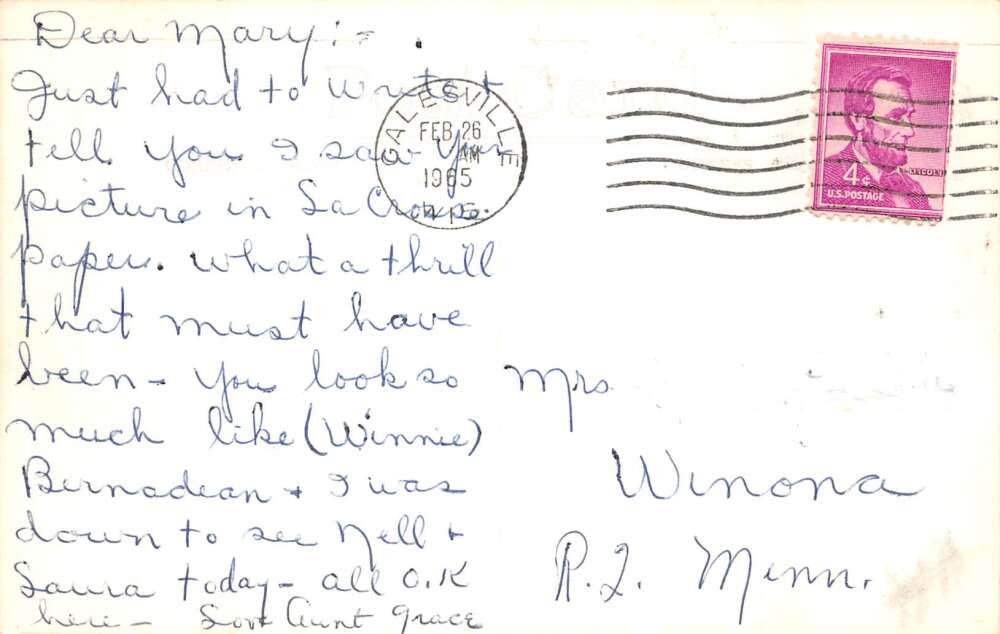 Dear Mary:-
Just had to write &
tell you I saw your
picture in La Crosse
paper. What a thrill
that must have
been - You look so
much like (Winnie)
Bernadean + I was
down to see Nell +
Laura today - all O.K
here - Love Aunt Grace
GALESVILLE
FEB 26
AM
1965
WIS.
4¢
LINCOLN
U.S. POSTAGE
Mrs
Winona
R.2. Minn.